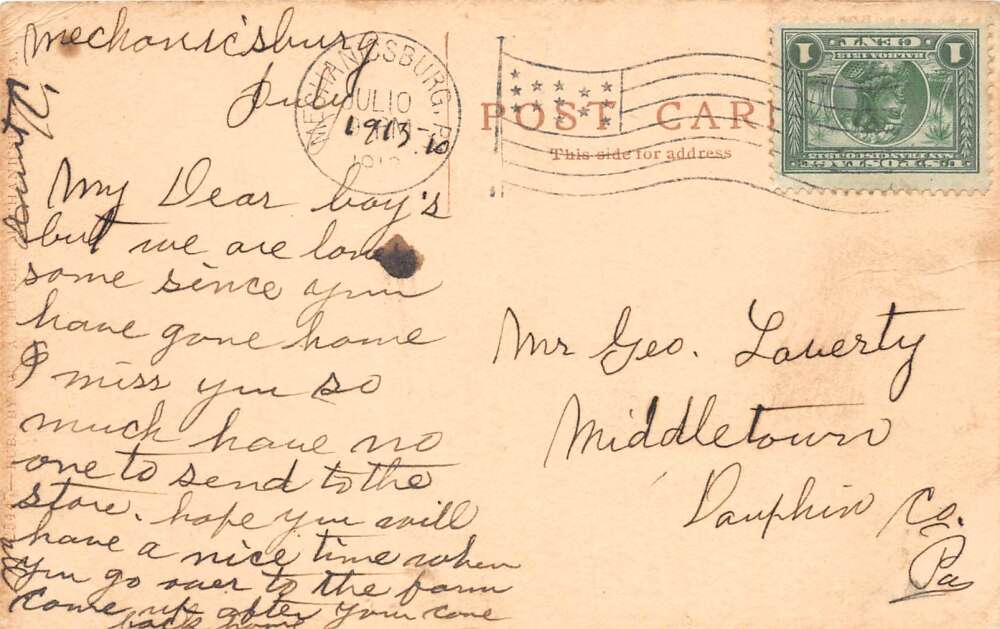 Mechanicsburg
July
1913
10
My Dear boy's
but we are lone
some since you
have gone home
I miss you so
much have no
one to send to the
store. hope you will
have a nice time when
you go over to the farm
come up after your come
back home
Aunt
MECHANICSBURG, PA.
JUL 10
POST CARD
This side for address
1 CENT 1
BALBOA 1513
U.S. POSTAGE
SAN FRANCISCO 1915
Mr Geo. Laverty
Middletown
Dauphin Co.
Pa